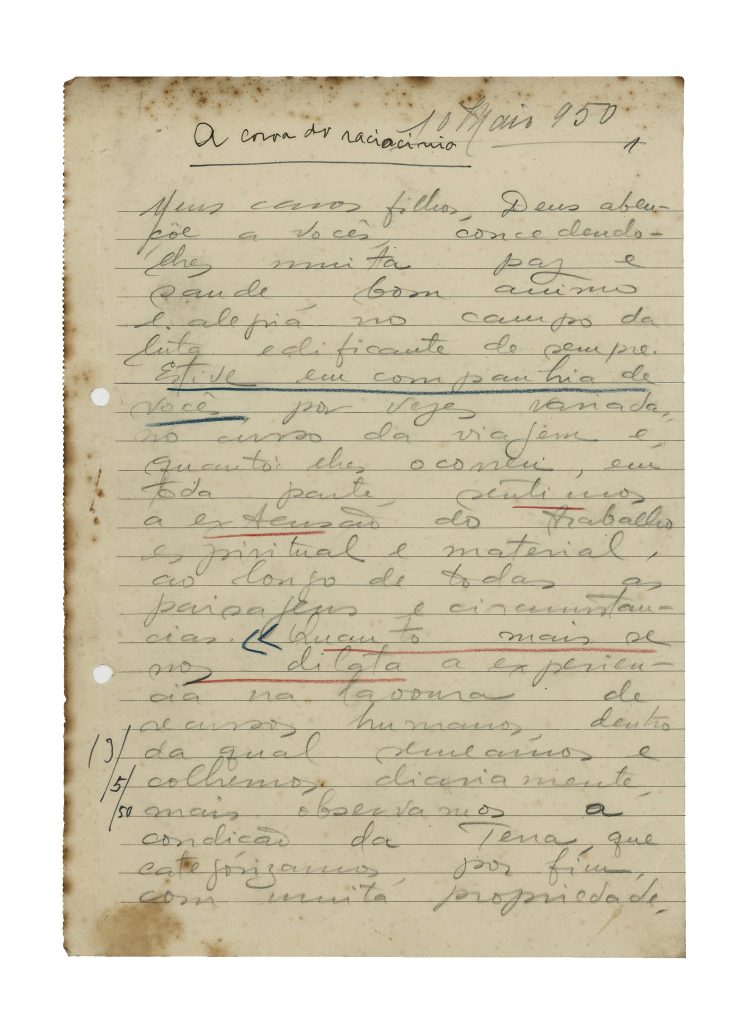 10 Maio 950
A coroa do raciocinio
1
Meus caros filhos, Deus aben-
çôe a vocês, concedendo-
lhes muita paz e
saude, bom animo
e alegria no campo da
luta edificante de sempre.
Estive em companhia de
vocês, por vezes variada,
no curso da viajem e,
quanto lhes ocorreu, em
toda parte, sentimos
a extensão do trabalho
espiritual e material,
ao longo de todas as
paisagens e circunstan-
cias. << Quanto mais se
nos dilata a experien-
cia na lavoura de
recursos humanos, dentro
da qual semeamos e
colhemos, diariamente,
mais observamos a
condição da Terra, que
categórizamos, por fim,
com muita propriedade,
19/
/5/
/50